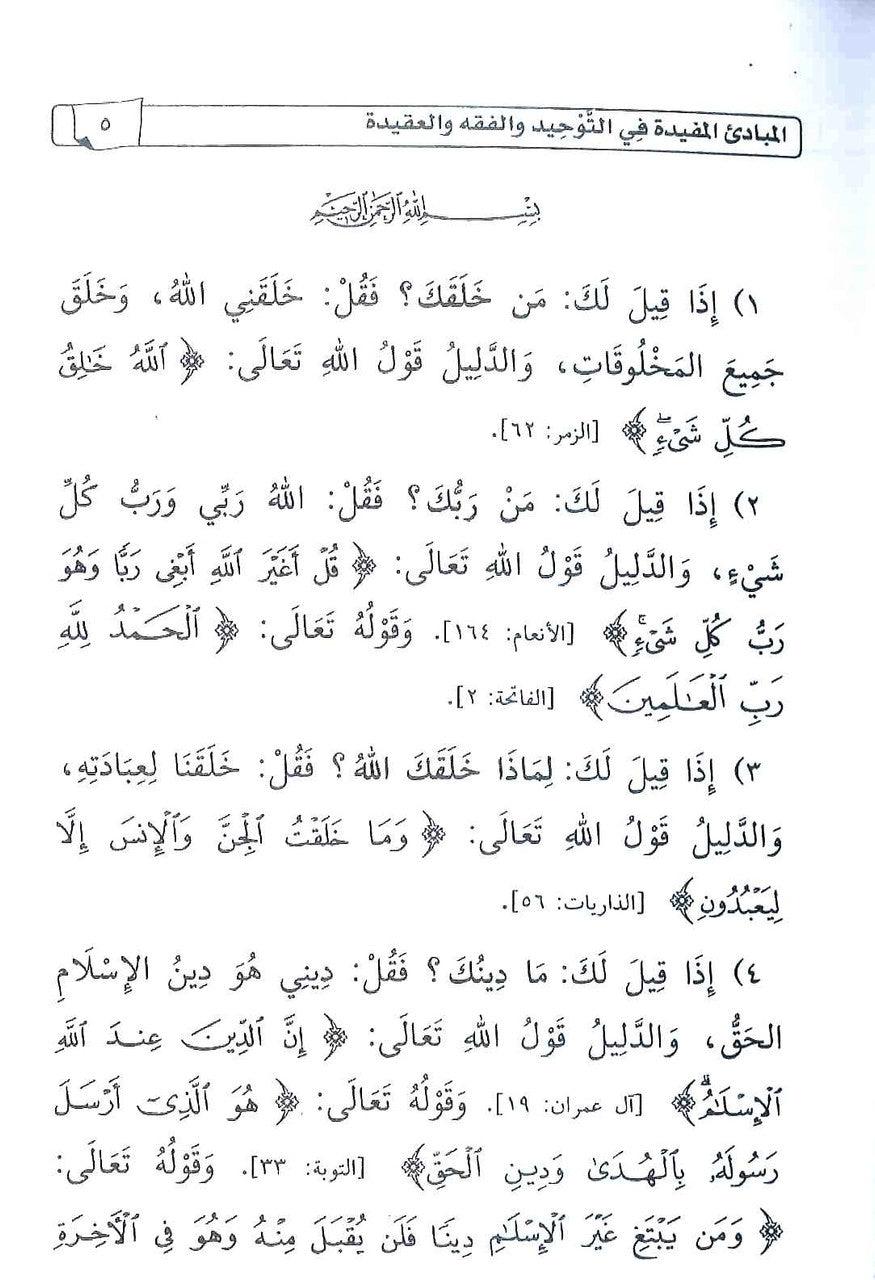 المبادئ المفيدة فِي التَّوْحِيد والفقه والعقيدة ٥
بِسْمِ ٱللَّهِ ٱلرَّحْمَٰنِ ٱلرَّحِيمِ
١) إِذَا قِيلَ لَكَ: مَن خَلَقَكَ؟ فَقُلْ: خَلَقَنِي اللهُ، وَخَلَقَ
جَمِيعَ المَخْلُوقَاتِ، وَالدَّلِيلُ قَوْلُ اللهِ تَعَالَى: ﴿ ٱللَّهُ خَٰلِقُ
كُلِّ شَىْءٍۖ ﴾ [الزمر: ٦٢].
٢) إِذَا قِيلَ لَكَ: مَنْ رَبُّكَ؟ فَقُلْ: اللهُ رَبِّي وَرَبُّ كُلِّ
شَيْءٍ، وَالدَّلِيلُ قَوْلُ اللهِ تَعَالَى: ﴿ قُلْ أَغَيْرَ ٱللَّهِ أَبْغِى رَبًّا وَهُوَ
رَبُّ كُلِّ شَىْءٍۚ ﴾ [الأنعام: ١٦٤]. وَقَوْلُهُ تَعَالَى: ﴿ ٱلْحَمْدُ لِلَّهِ
رَبِّ ٱلْعَٰلَمِينَ ﴾ [الفاتحة: ٢].
٣) إِذَا قِيلَ لَكَ: لِمَاذَا خَلَقَكَ اللهُ؟ فَقُلْ: خَلَقَنَا لِعِبَادَتِهِ،
وَالدَّلِيلُ قَوْلُ اللهِ تَعَالَى: ﴿ وَمَا خَلَقْتُ ٱلْجِنَّ وَٱلْإِنسَ إِلَّا
لِيَعْبُدُونِ ﴾ [الذاريات: ٥٦].
٤) إِذَا قِيلَ لَكَ: مَا دِينُكَ؟ فَقُلْ: دِينِي هُوَ دِينُ الإِسْلَامِ
الحَقُّ، وَالدَّلِيلُ قَوْلُ اللهِ تَعَالَى: ﴿ إِنَّ ٱلدِّينَ عِندَ ٱللَّهِ
ٱلْإِسْلَٰمُۗ ﴾ [آل عمران: ١٩]. وَقَوْلُهُ تَعَالَى: ﴿ هُوَ ٱلَّذِىٓ أَرْسَلَ
رَسُولَهُۥ بِٱلْهُدَىٰ وَدِينِ ٱلْحَقِّ ﴾ [التوبة: ٣٣]. وَقَوْلُهُ تَعَالَى:
﴿ وَمَن يَبْتَغِ غَيْرَ ٱلْإِسْلَٰمِ دِينًا فَلَن يُقْبَلَ مِنْهُ وَهُوَ فِى ٱلْأٓخِرَةِ